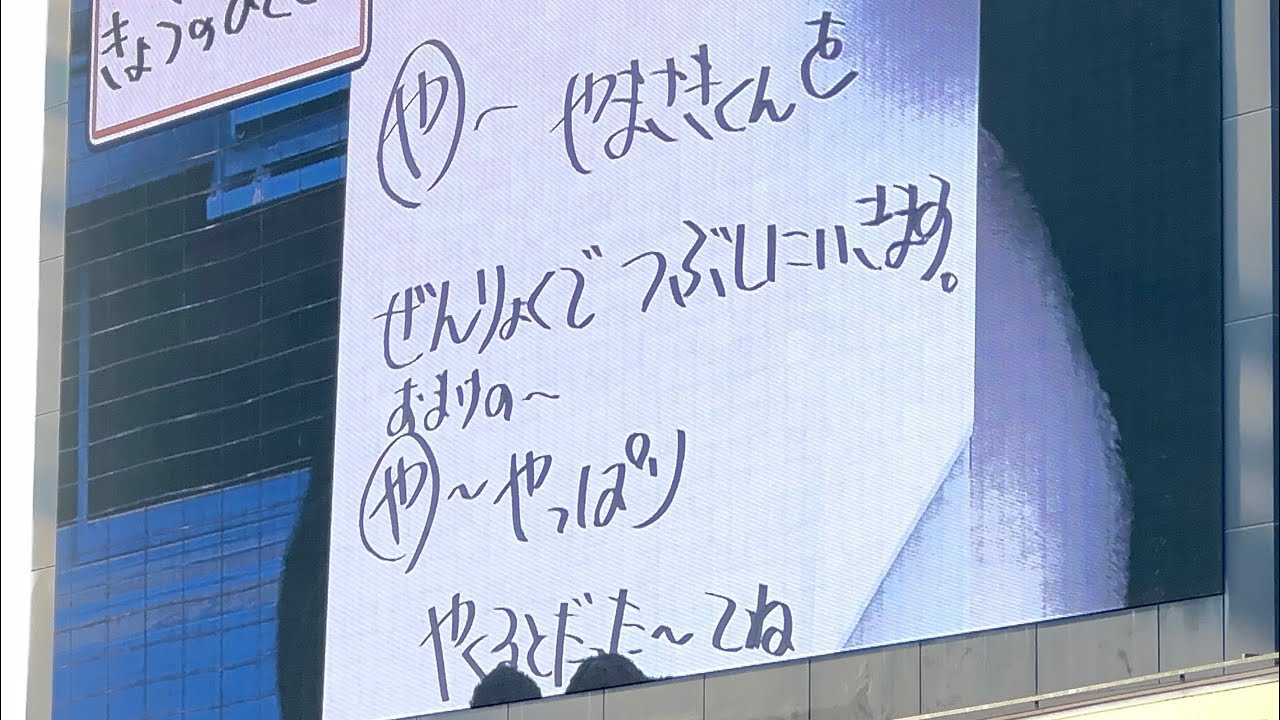 きょうのひとこ
や～ やまさきくんを
ぜんりょくで つぶしにいきます。
おまけの～
や～やっぱり
やくるとだった～てね